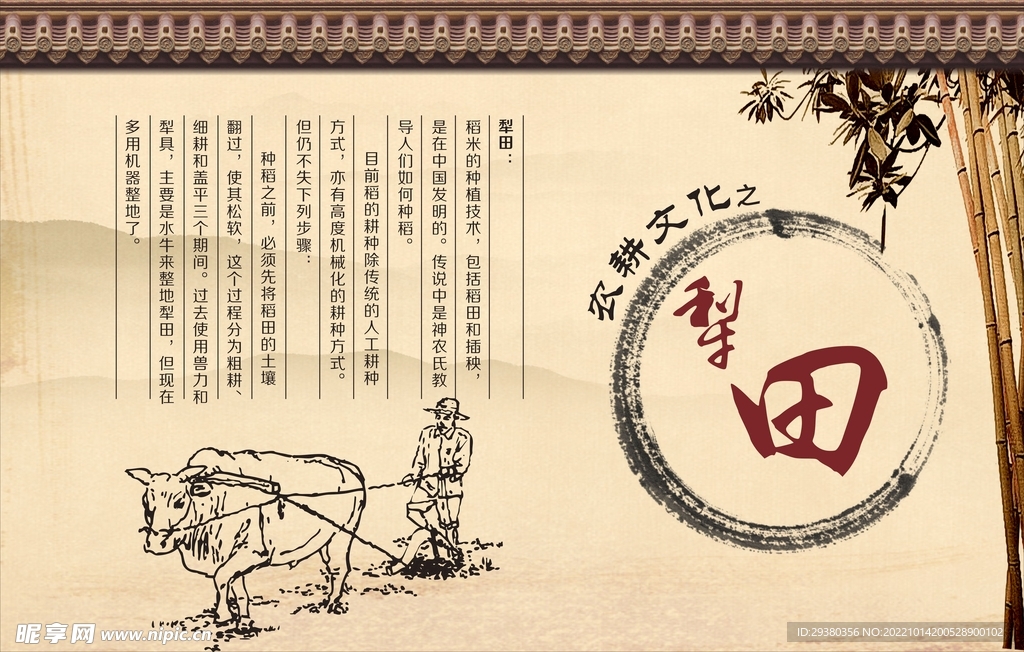 农耕文化之
犁田
犁田：
稻米的种植技术，包括稻田和插秧，
是在中国发明的。传说中是神农氏教
导人们如何种稻。
目前稻的耕种除传统的人工耕种
方式，亦有高度机械化的耕种方式。
但仍不失下列步骤：
种稻之前，必须先将稻田的土壤
翻过，使其松软，这个过程分为粗耕、
细耕和盖平三个期间。过去使用兽力和
犁具，主要是水牛来整地犁田，但现在
多用机器整地了。
昵享网 www.nipic.cn
ID:29380356 NO:20221014200528900102